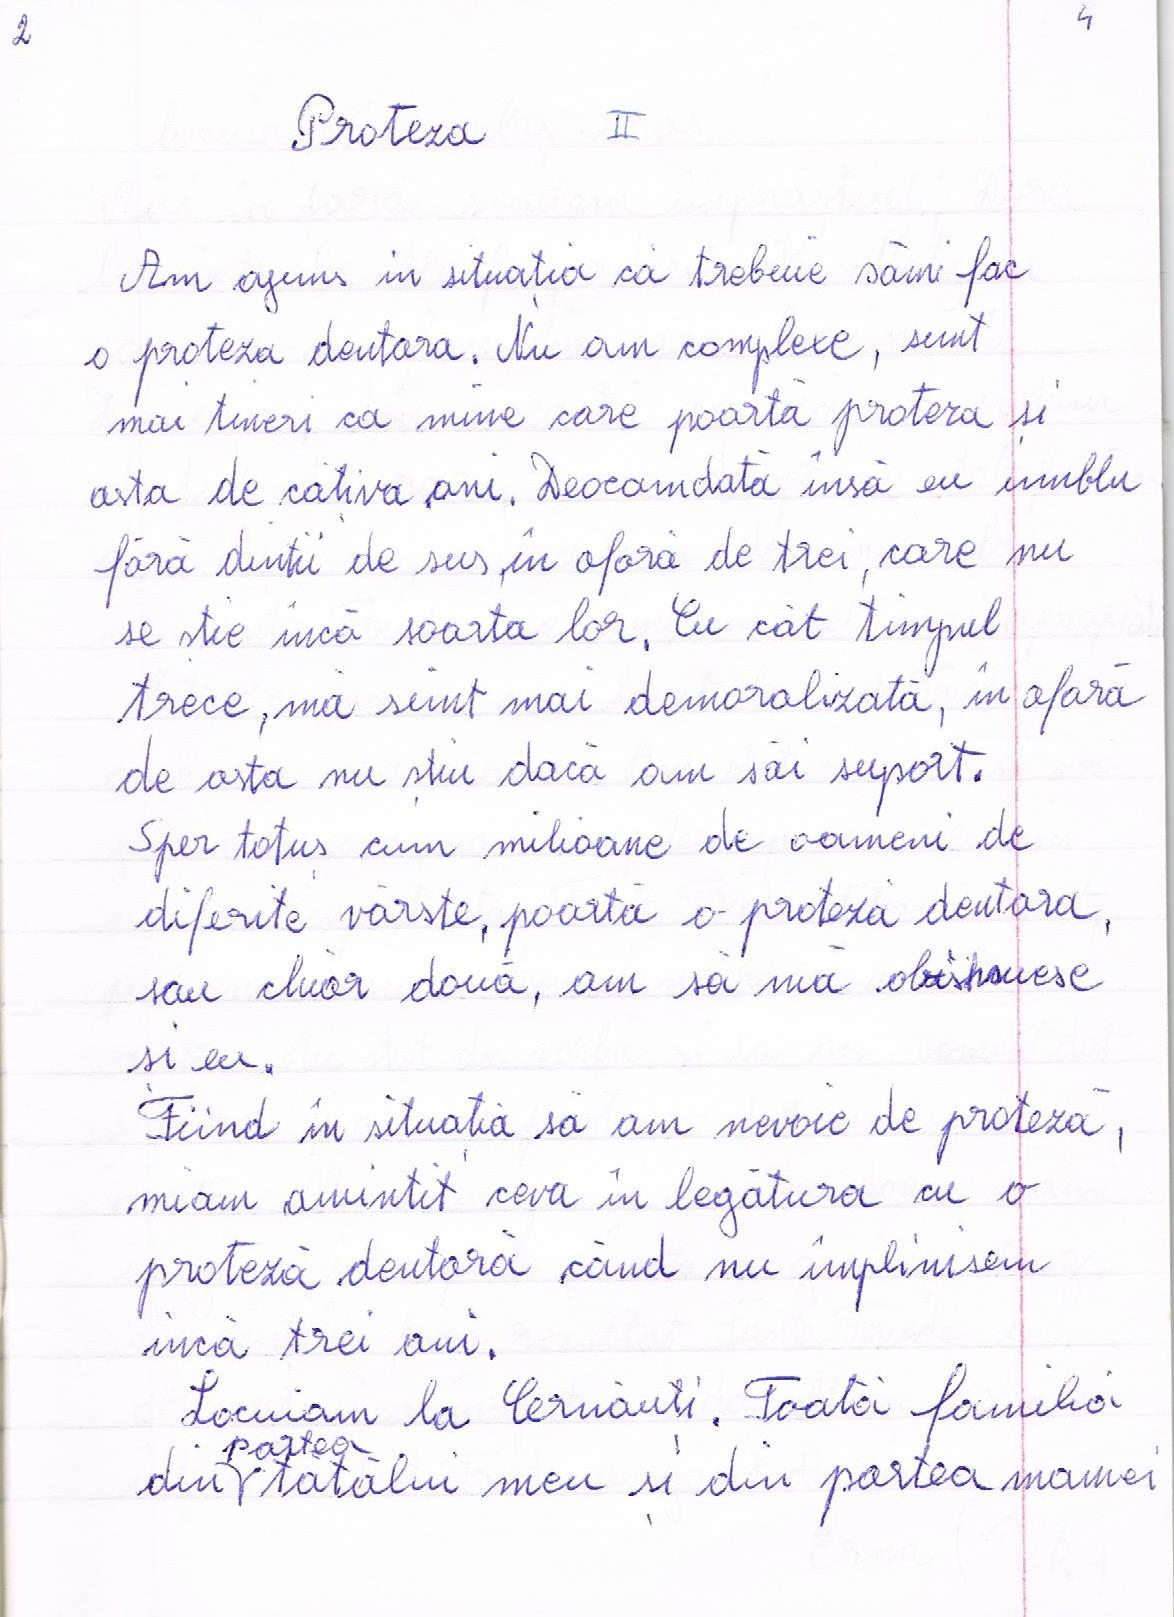 2 4
Proteza II
Am ajuns in situația că trebuie sămi fac
o proteza dentara. Nu am complexe, sunt
mai tineri ca mine care poartă proteza și
asta de câtiva ani. Deocamdată însă eu umblu
fără dinții de sus, în afară de trei, care nu
se știe încă soarta lor. Cu cât timpul
trece, mă simt mai demoralizată, în afară
de asta nu știu dacă am săi suport.
Sper totuș cum milioane de oameni de
diferite vârste, poartă o proteză dentara,
sau chiar două, am să mă obișnuesc
și eu.
Fiind în situația să am nevoie de proteză,
miam amintit ceva în legătura cu o
proteză dentară când nu împlinisem
încă trei ani.
Locuiam la Cernăuți. Toată familia
din partea tatălui meu și din partea mamei